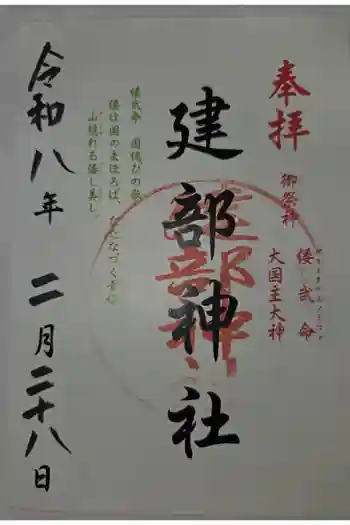 奉拝
御祭神
倭武命
ヤマトタケルノミコト
大国主大神
建部神社
倭武命 国偲びの歌
倭は国の まほろば、たたなづく 青垣
山隠れる 倭し美し。
令和八年 二月二十八日